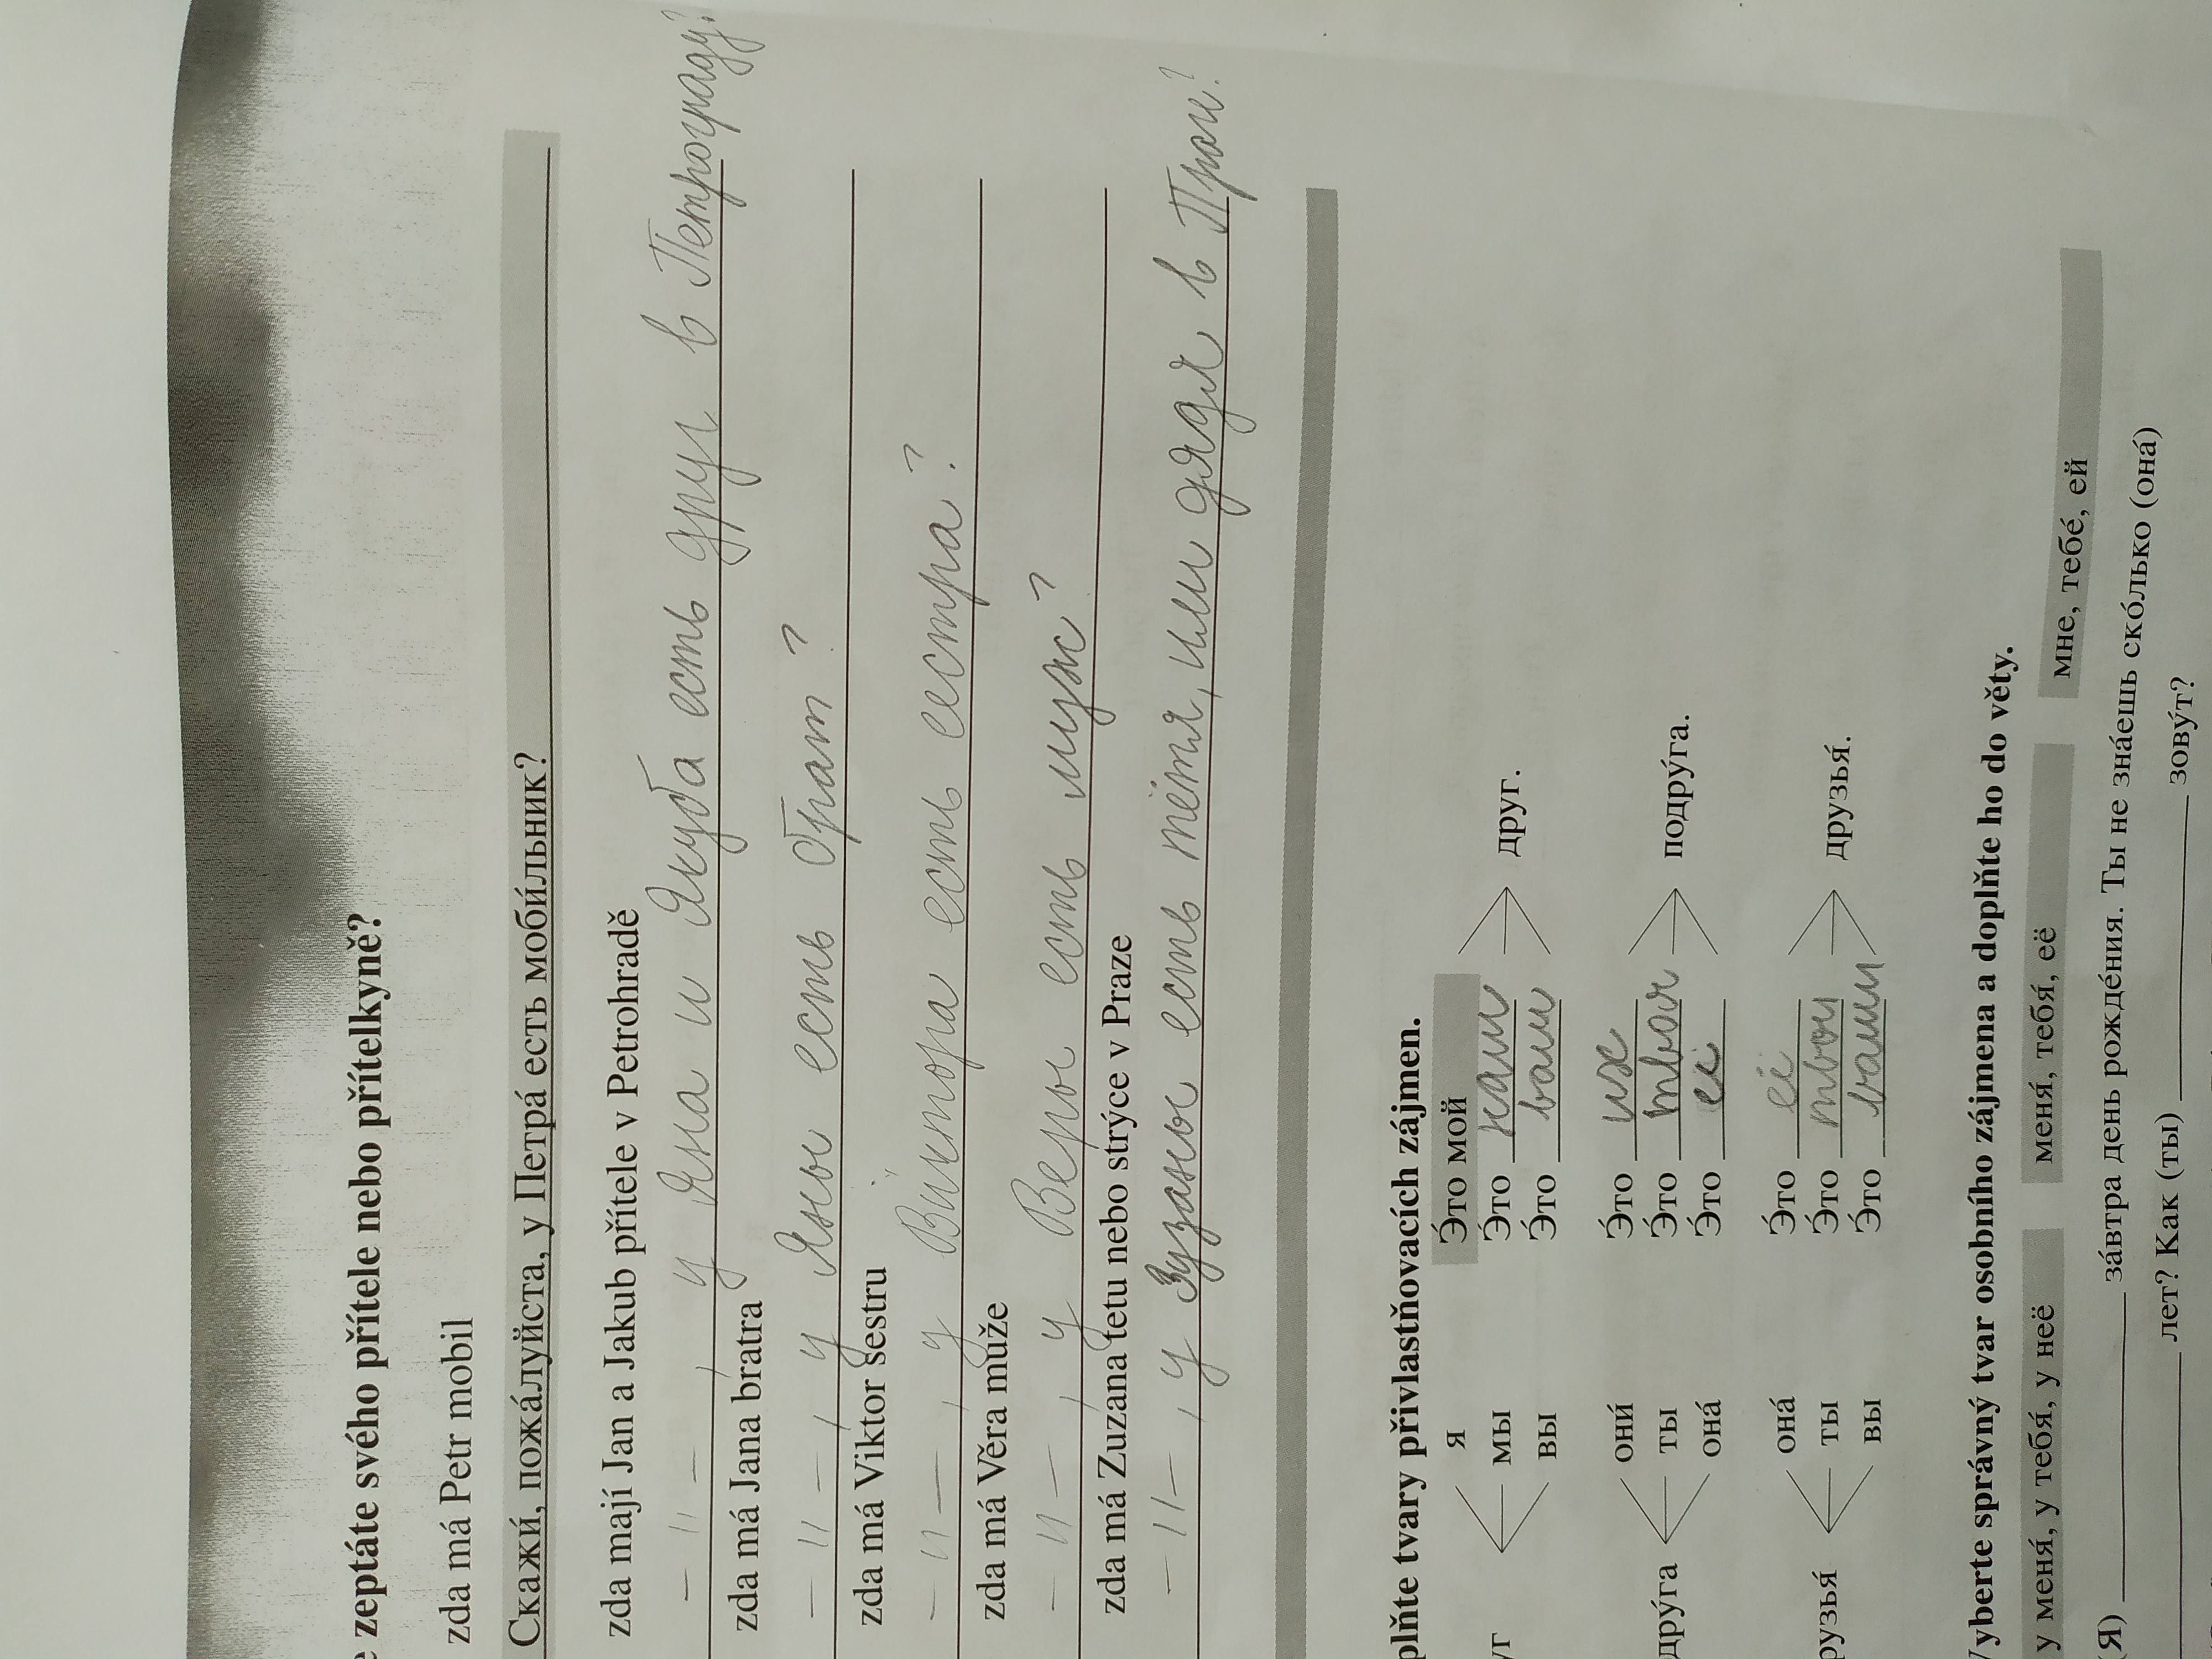 e zeptáte svého přítele nebo přítelkyně?
zda má Petr mobil
Скажи́, пожа́луйста, у Петра́ есть моби́льник?
zda mají Jan a Jakub přítele v Petrohradě
– 11 – , у Яна и Якуба есть друг в Петрограду?
zda má Jana bratra
– 11 – , у Яны есть брат?
zda má Viktor sestru
– 11 – , у Виктора есть сестра?
zda má Věra muže
– 11 – , у Веры есть муж?
zda má Zuzana tetu nebo strýce v Praze
– 11 – , у Зузаны есть тётя, или дядя в Праги?
plňte tvary přivlastňovacích zájmen.
я Э́то мой
уг мы Э́то наш друг.
вы Э́то ваш
они́ Э́то их
дру́га ты Э́то твоя подру́га.
она́ Э́то её
она́ Э́то её
рузья́ ты Э́то твои друзья́.
вы Э́то ваши
Vyberte správný tvar osobního zájmena a doplňte ho do věty.
у меня́, у тебя́, у неё меня́, тебя́, её мне, тебе́, ей
(Я) за́втра день рожде́ния. Ты не зна́ешь ско́лько (она́)
лет? Как (ты) зову́т?